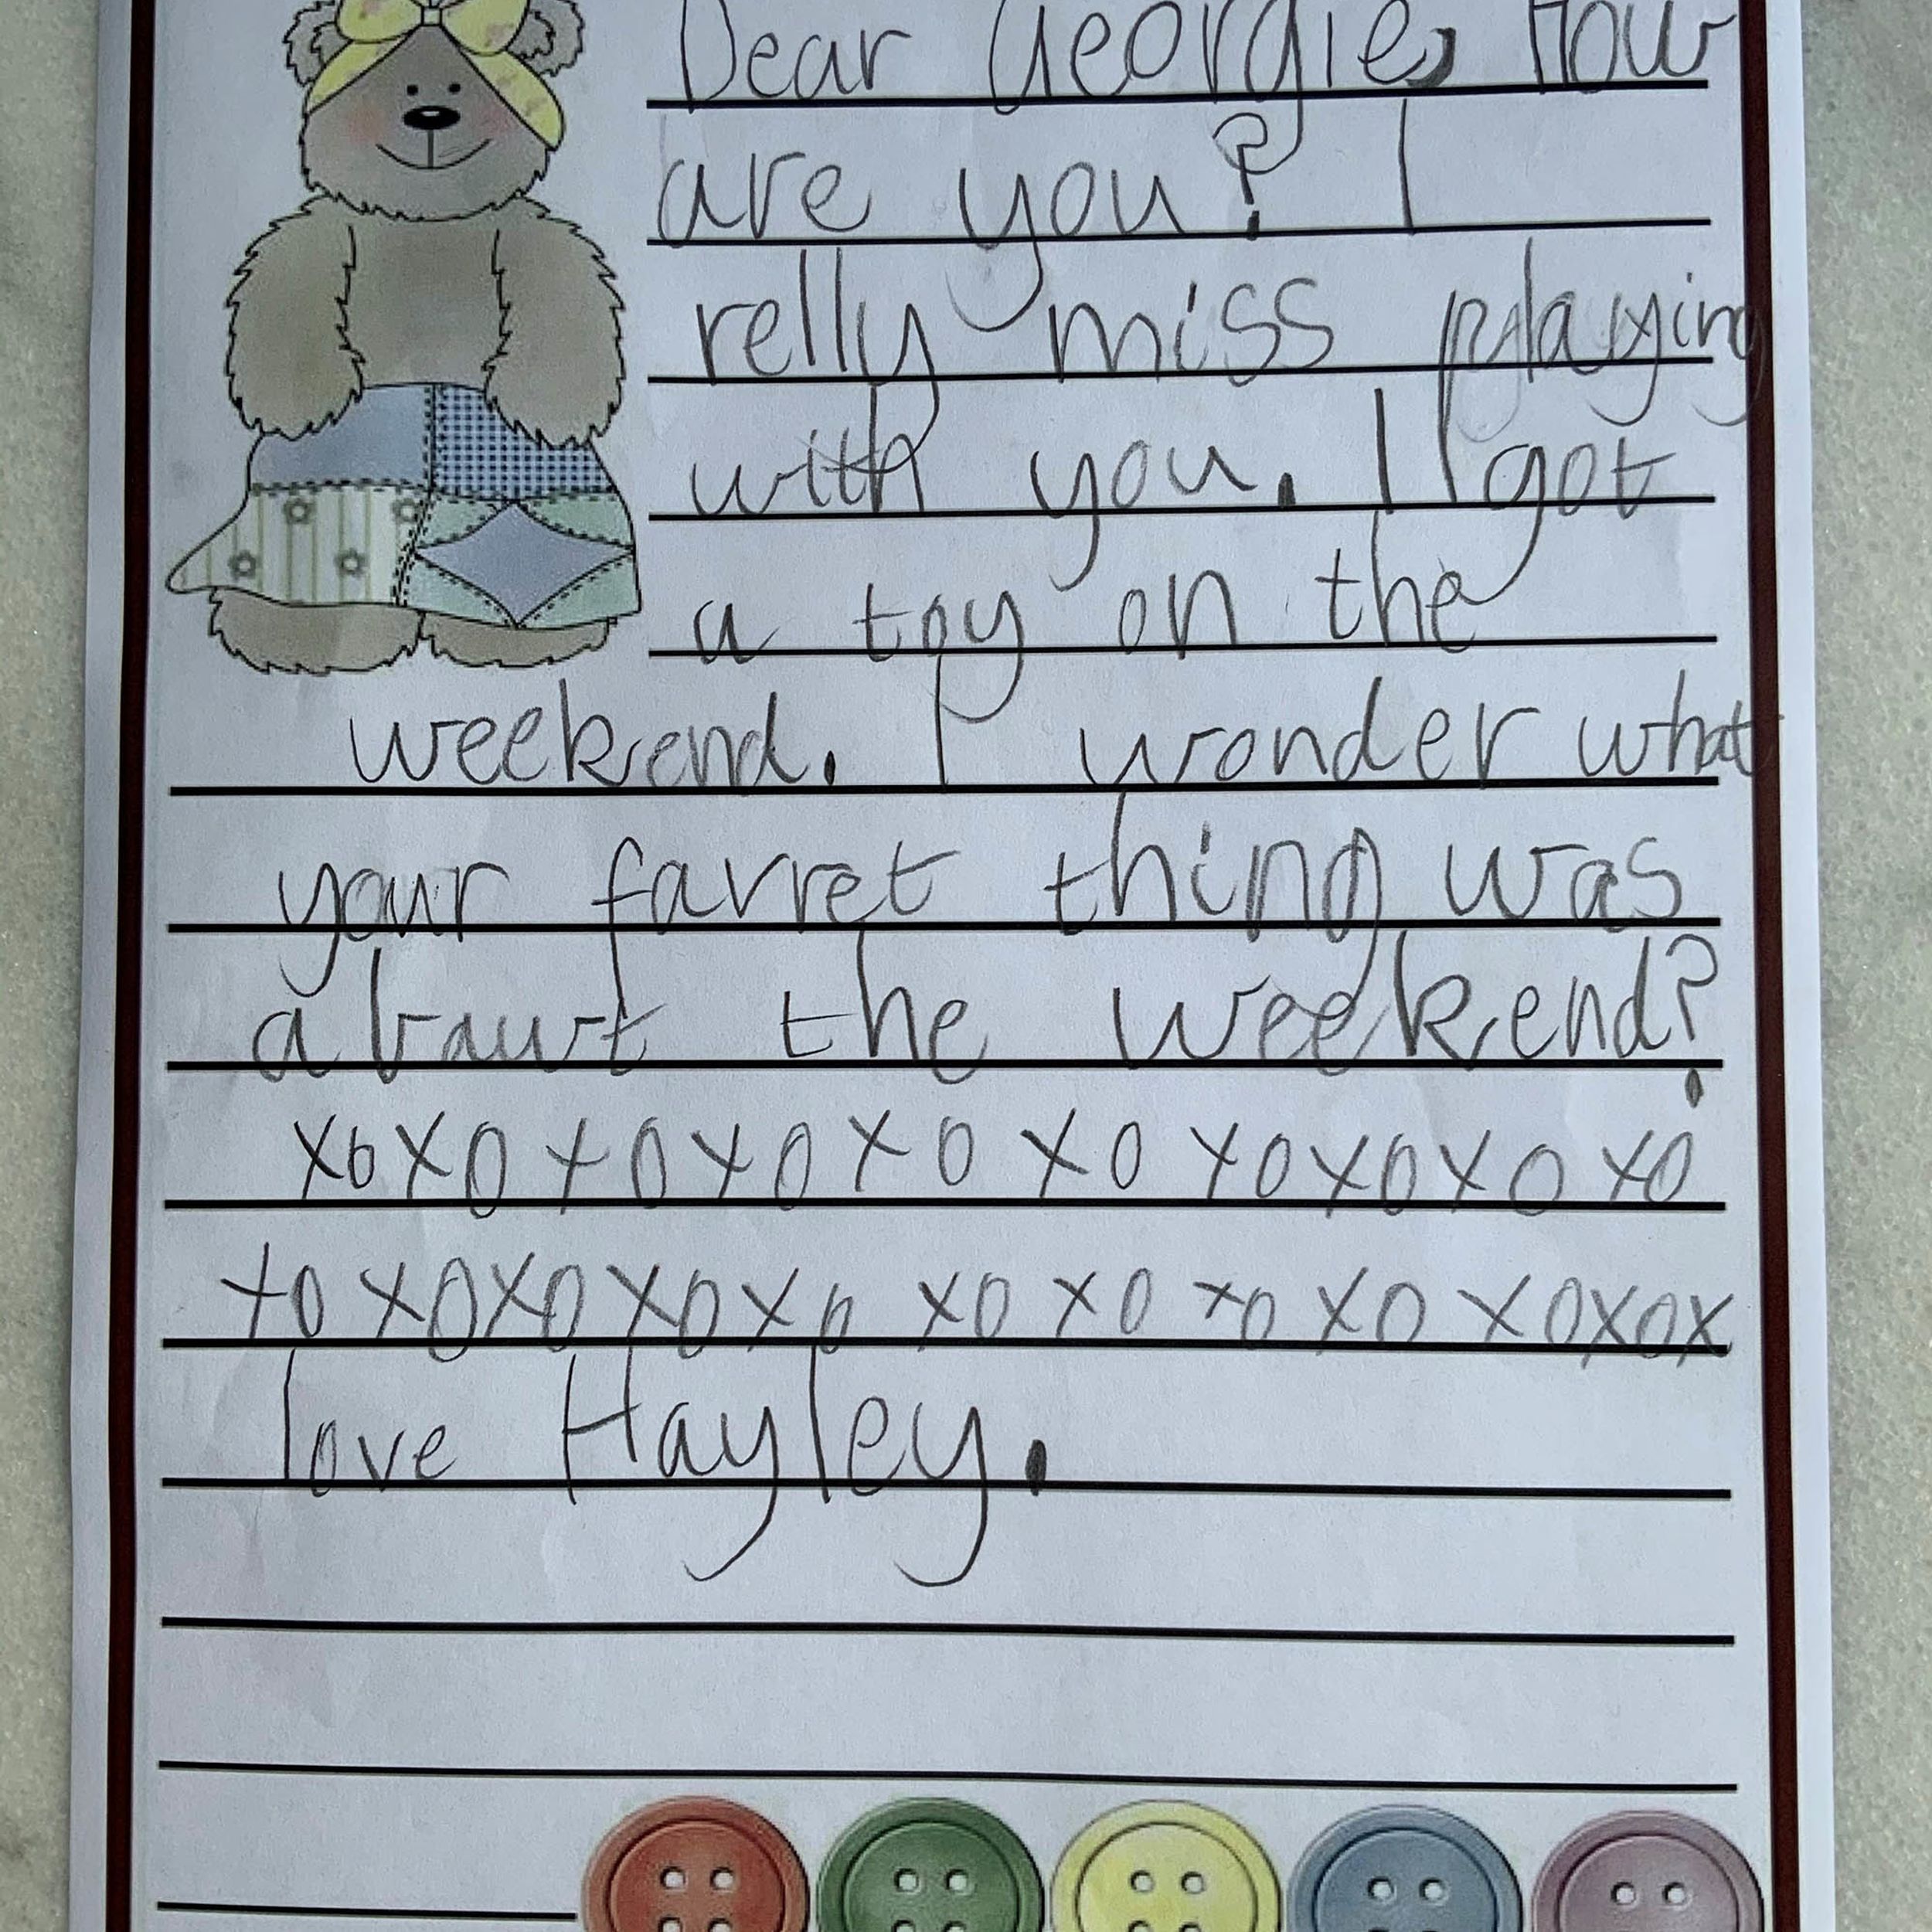 Dear Georgie, How
are you? I
relly miss playing
with you. I got
a toy on the
weekend. I wonder what
your favret thing was
abawt the weekend?
xoxoxoxoxoxoxoxoxoxo
xoxoxoxoxoxoxoxoxoxoxox
love Hayley.